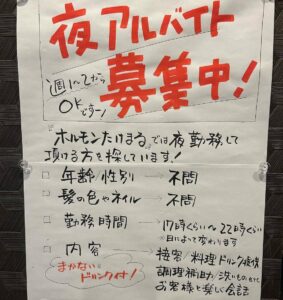 夜アルバイト
週1〜2から
OKですー!
募集中!
ホルモンたけまるでは夜勤務して
頂ける方を探しています!
□ 年齢性別 → 不問
□ 髪の色やネイル → 不問
□ 勤務時間 → 17時ぐらい〜22時ぐらい
※日によって変わります
□ 内容 接客/料理ドリンク提供
調理補助/洗いものetc
お客様と楽しく会話
まかない
ドリンク付!